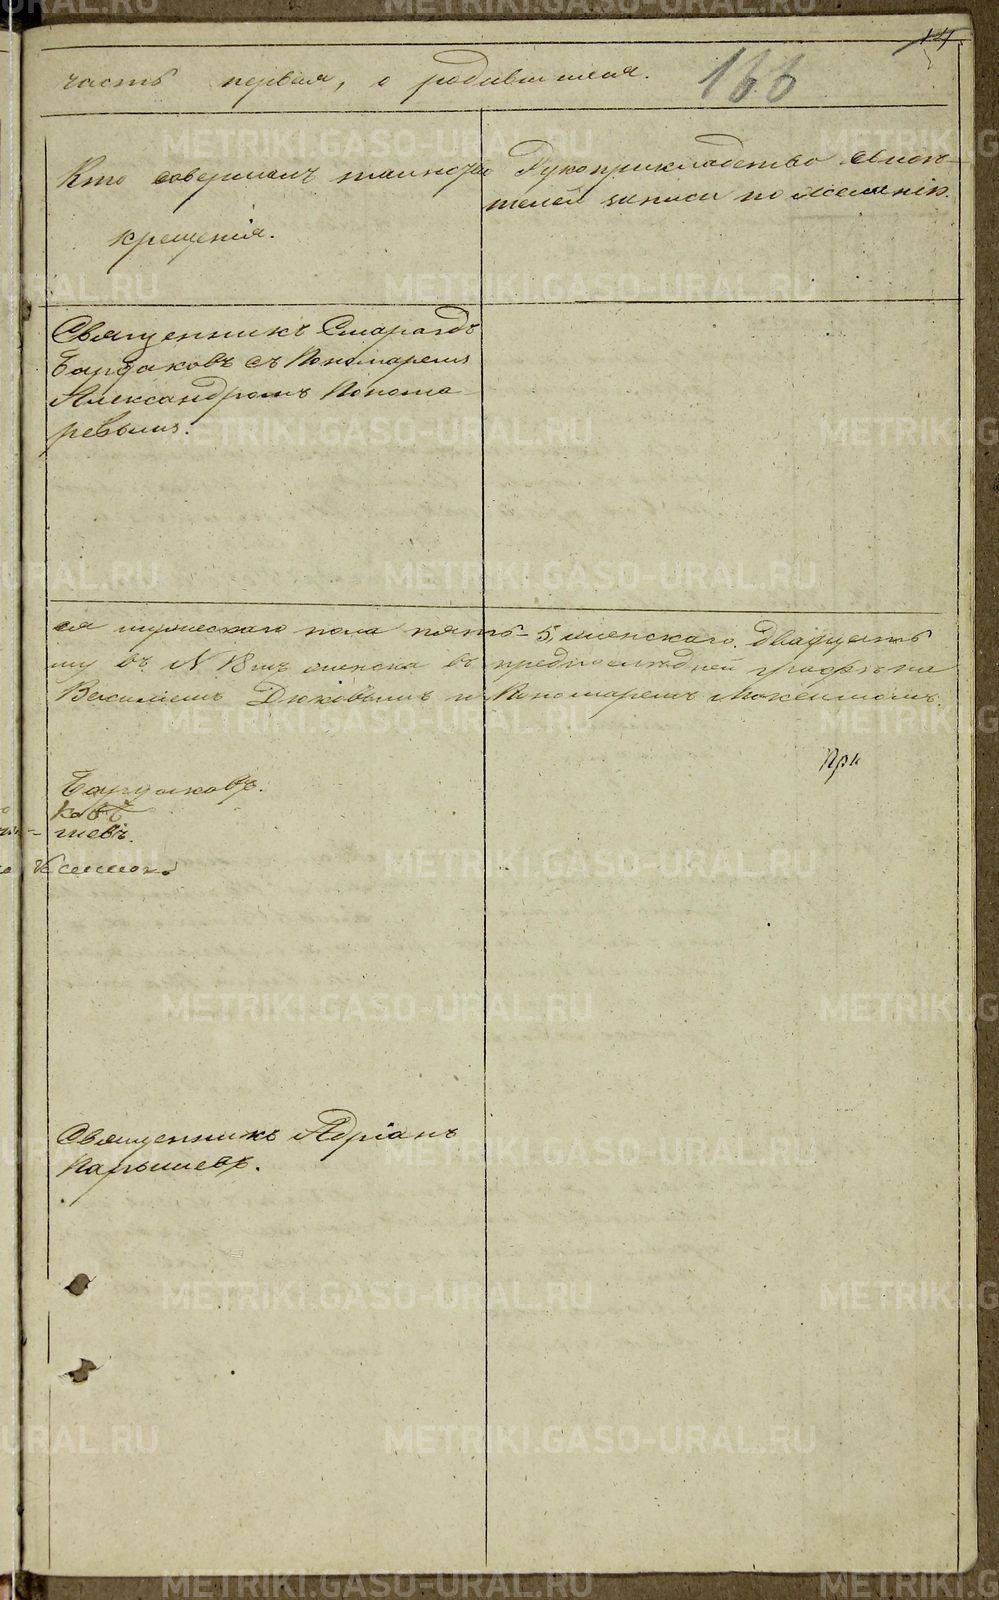 часть первая, о родившихся.
166
Кто совершалъ таинство
крещенія.
Рукоприкладство свидѣ-
телей записи по желанію.
Священникъ Смарагдъ
Бардаковъ съ Пономаремъ
Александромъ Понома-
ревымъ.
ся мужескаго пола пять - 5, женскаго двадцать
му въ N 18мъ женска въ предпослѣдней графѣ на
Василіемъ Дюковымъ и Пономаремъ
При
Бардаковъ.
ковъ
шевъ.
Священникъ Адріанъ
Парышевъ.
METRIKI.GASO-URAL.RU